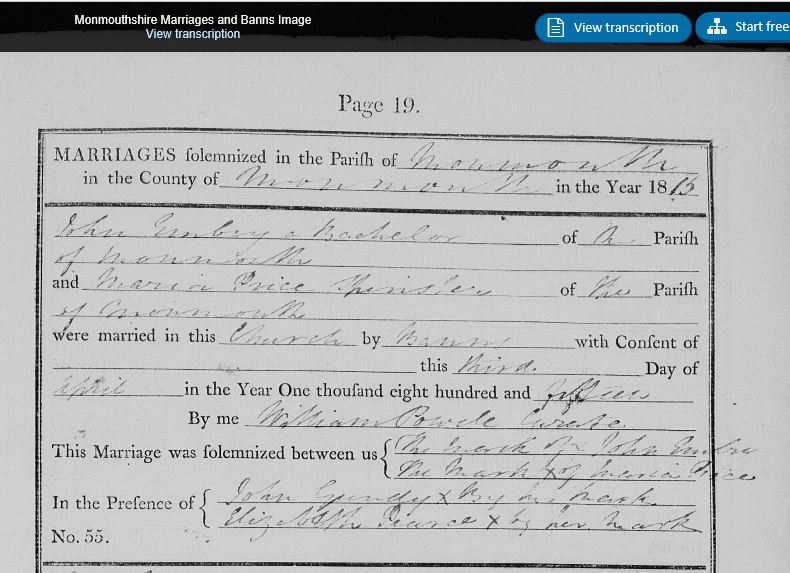 Monmouthshire Marriages and Banns Image
View transcription
View transcription
Start free
Page 19.
MARRIAGES ſolemnized in the Pariſh of Monmouth
in the County of Monmouth in the Year 1815
John Embry a Bachelor of the Pariſh
of Monmouth
and Maria Price Spinster of the Pariſh
of Monmouth
were married in this Church by Banns with Conſent of
this third. Day of
April in the Year One thouſand eight hundred and fifteen
By me William Powell Curate
This Marriage was ſolemnized between us { The Mark of x John Embry
The Mark x of Maria Price
In the Preſence of { John x By his Mark
Elizabeth Pearce x by her Mark
No. 55.